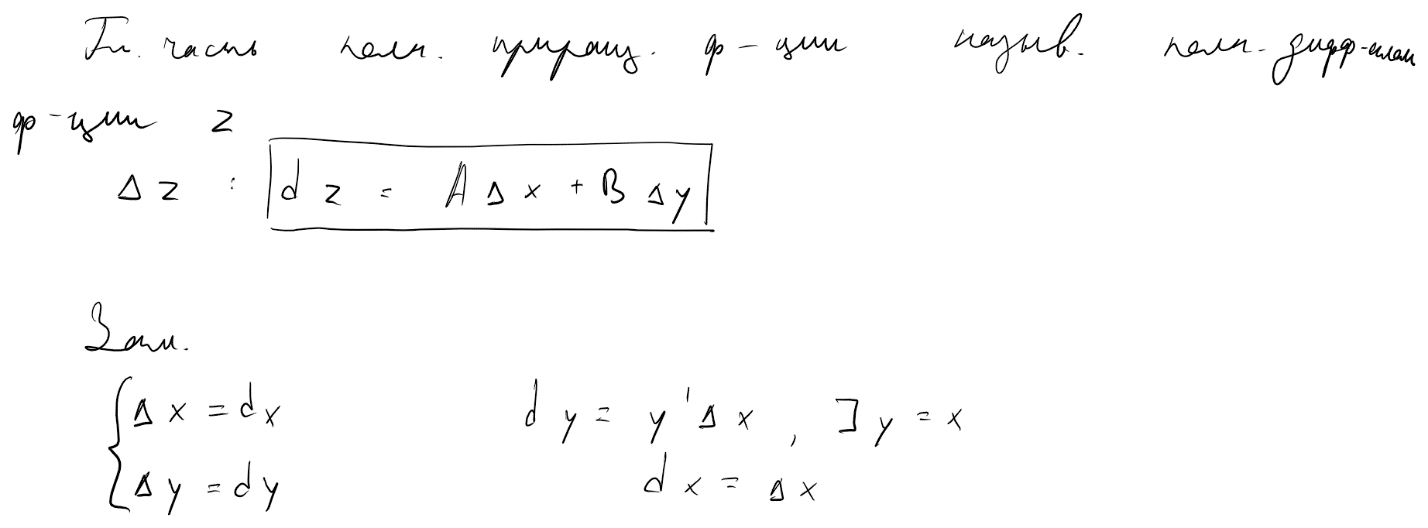 Гл. часть полн. приращ. ф-ции назыв. полн. дифф-алом
ф-ции z
Δz : dz = AΔx + BΔy
Зам.
{ Δx = dx      dy = y'Δx , ] y = x
{ Δy = dy      dx = Δx